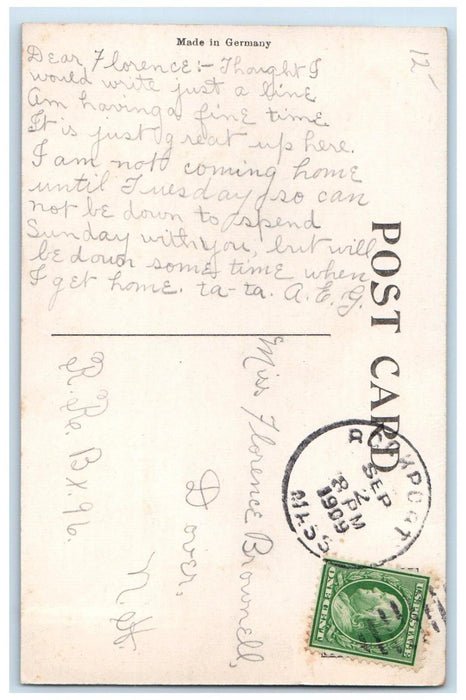 Made in Germany
12
Dear Florence:- Thought I
would write just a line
Am having a fine time
It is just great up here.
I am not coming home
until Tuesday so can
not be down to spend
Sunday with you, but will
be down some time when
I get home. ta-ta. A.E.G.
POST CARD
Miss Florence Brownell,
Dover,
N.H.
Bx. 96.
SEP
2
8 PM
1909
MASS
U.S. POSTAGE
ONE CENT